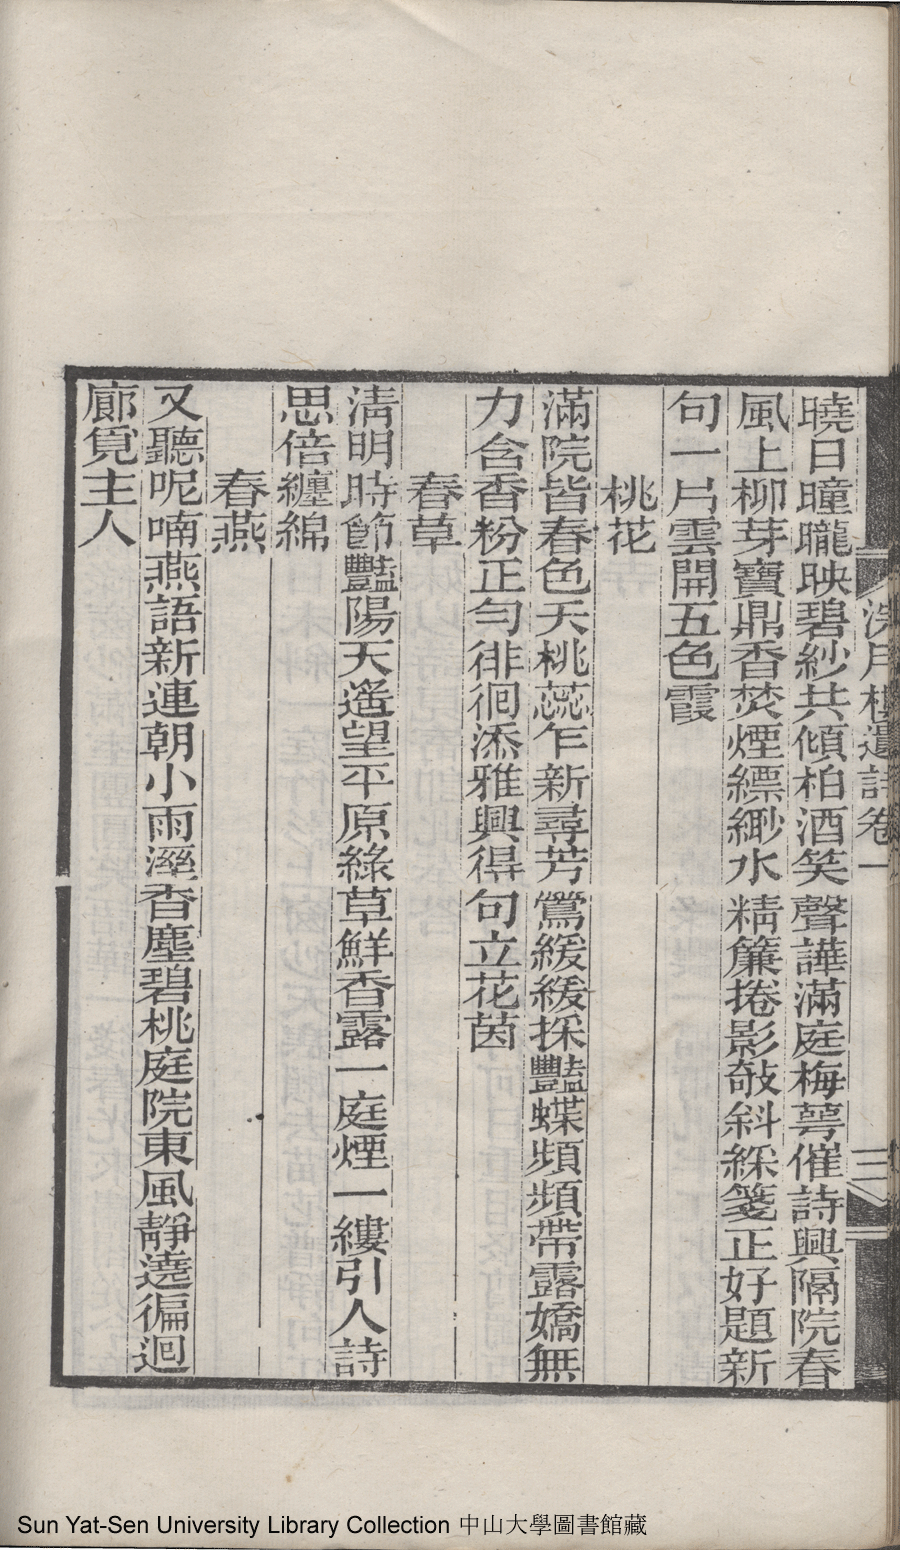 曉日曈曨映碧紗共傾柏酒笑聲譁滿庭梅萼催詩興隔院春
風上柳芽寶鼎香焚煙縹緲水精簾捲影攲斜綵箋正好題新
句一片雲開五色霞
桃花
滿院皆春色夭桃蕊乍新尋芳鶯緩緩採豔蝶頻頻帶露嬌無
力含香粉正勻徘徊添雅興得句立花茵
春草
清明時節豔陽天遙望平原綠草鮮香露一庭煙一縷引人詩
思倍纏綿
春燕
又聽呢喃燕語新連朝小雨溼香塵碧桃庭院東風靜遶徧迴
廊覓主人
月樓遺詩卷一
三
Sun Yat-Sen University Library Collection 中山大學圖書館藏